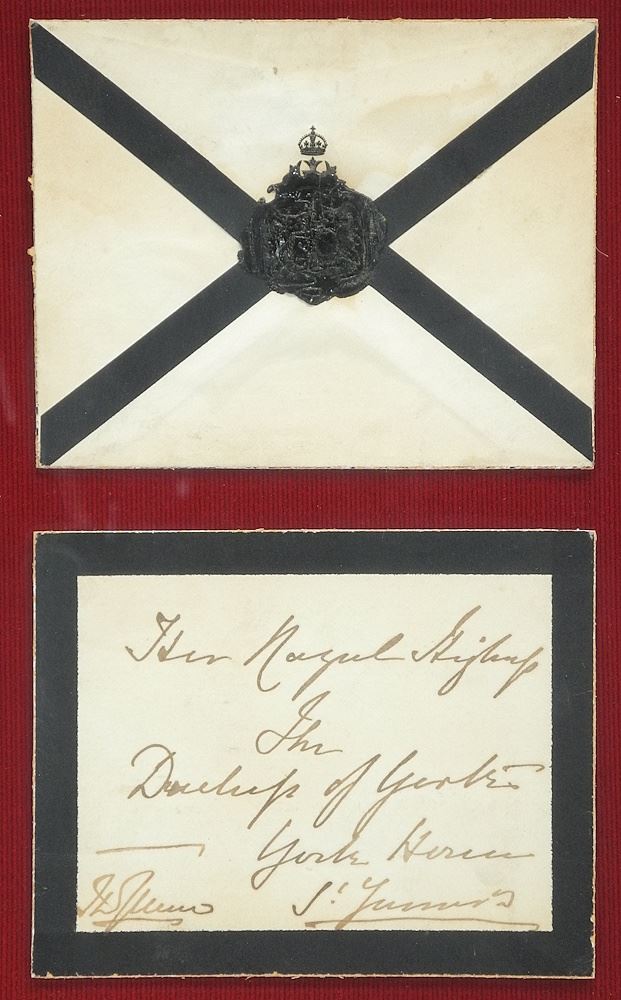 Her Royal Highness
The
Duchess of York
York House
The Queen St. James's